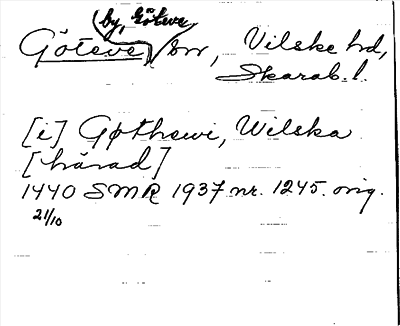 (by, Göteve
Göteve) sn, Vilske hd,
Skarab. l.
[i] Gøthewi, Wilska
[härad]
1440 SMR 1937 nr. 1245. orig.
21/10